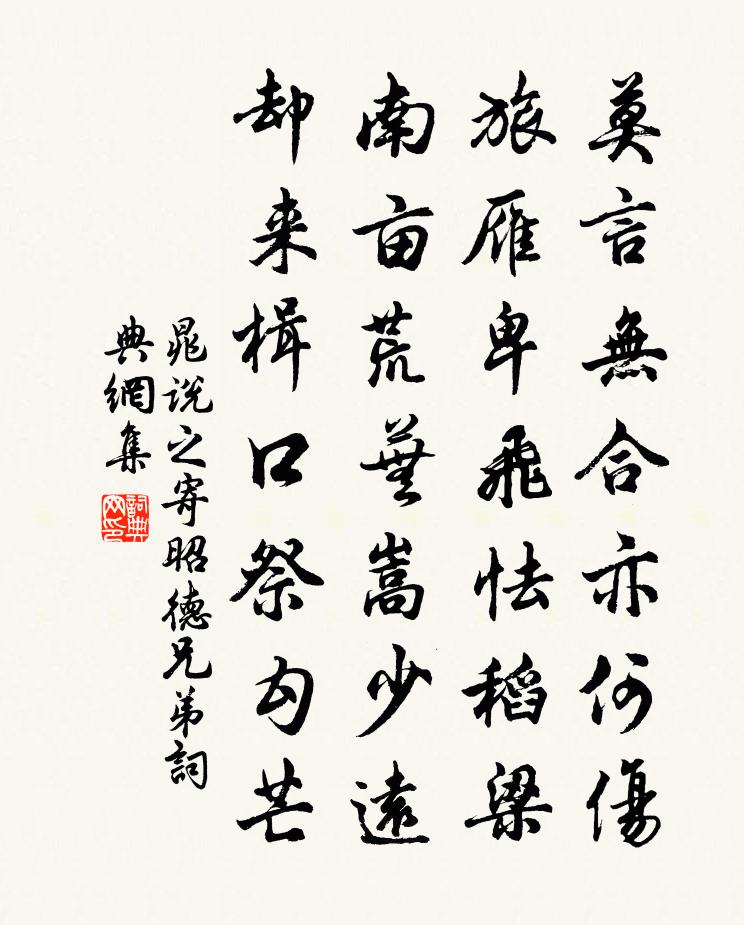 莫言無合亦何傷
旅雁卑飛怯稻梁
南亩荒蕪嵩少遠
却来楫口祭勾芒
晁説之寄昭德兄弟詞
典網集
詞典
网印